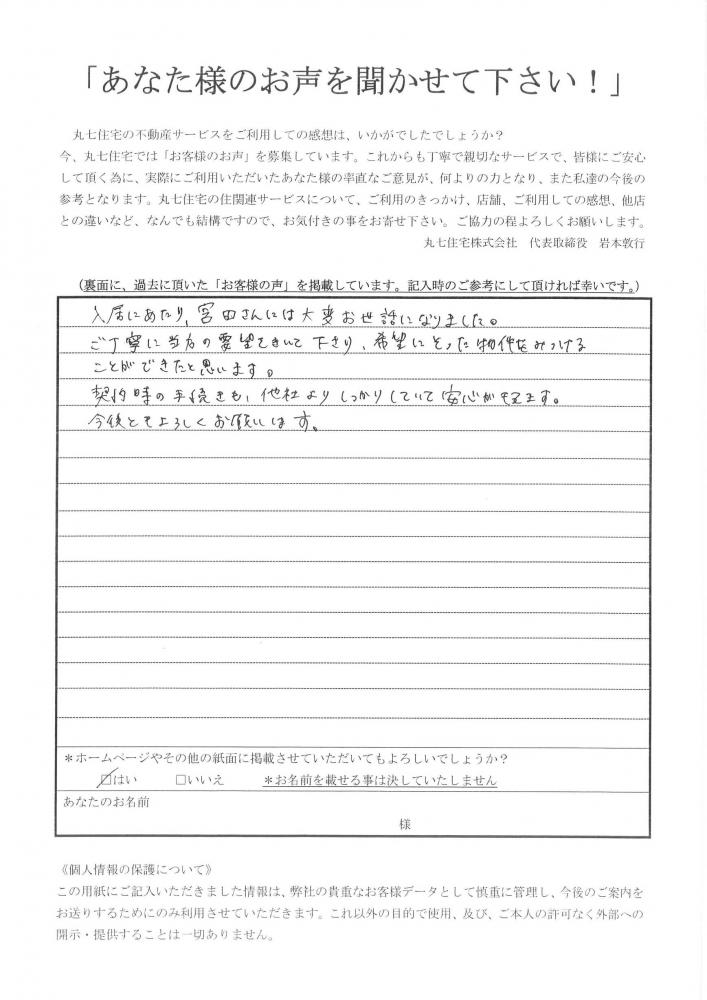 「あなた様のお声を聞かせて下さい！」
丸七住宅の不動産サービスをご利用しての感想は、いかがでしたでしょうか？
今、丸七住宅では「お客様のお声」を募集しています。これからも丁寧で親切なサービスで、皆様にご安心
して頂く為に、実際にご利用いただいたあなた様の率直なご意見が、何よりの力となり、また私達の今後の
参考となります。丸七住宅の住関連サービスについて、ご利用のきっかけ、店舗、ご利用しての感想、他店
との違いなど、なんでも結構ですので、お気付きの事をお寄せ下さい。ご協力の程よろしくお願いします。
丸七住宅株式会社　代表取締役　岩本敦行
（裏面に、過去に頂いた「お客様の声」を掲載しています。記入時のご参考にして頂ければ幸いです。）
入居にあたり、宮田さんには大変お世話になりました。
ご丁寧に当方の要望をきいて下さり、希望にそった物件をみつける
ことができたと思います。
契約時の手続きも、他社よりしっかりしていて安心がもてます。
今後ともよろしくお願いします。
＊ホームページやその他の紙面に掲載させていただいてもよろしいでしょうか？
☑はい　□いいえ　＊お名前を載せる事は決していたしません
あなたのお名前
様
《個人情報の保護について》
この用紙にご記入いただきました情報は、弊社の貴重なお客様データとして慎重に管理し、今後のご案内を
お送りするためにのみ利用させていただきます。これ以外の目的で使用、及び、ご本人の許可なく外部への
開示・提供することは一切ありません。